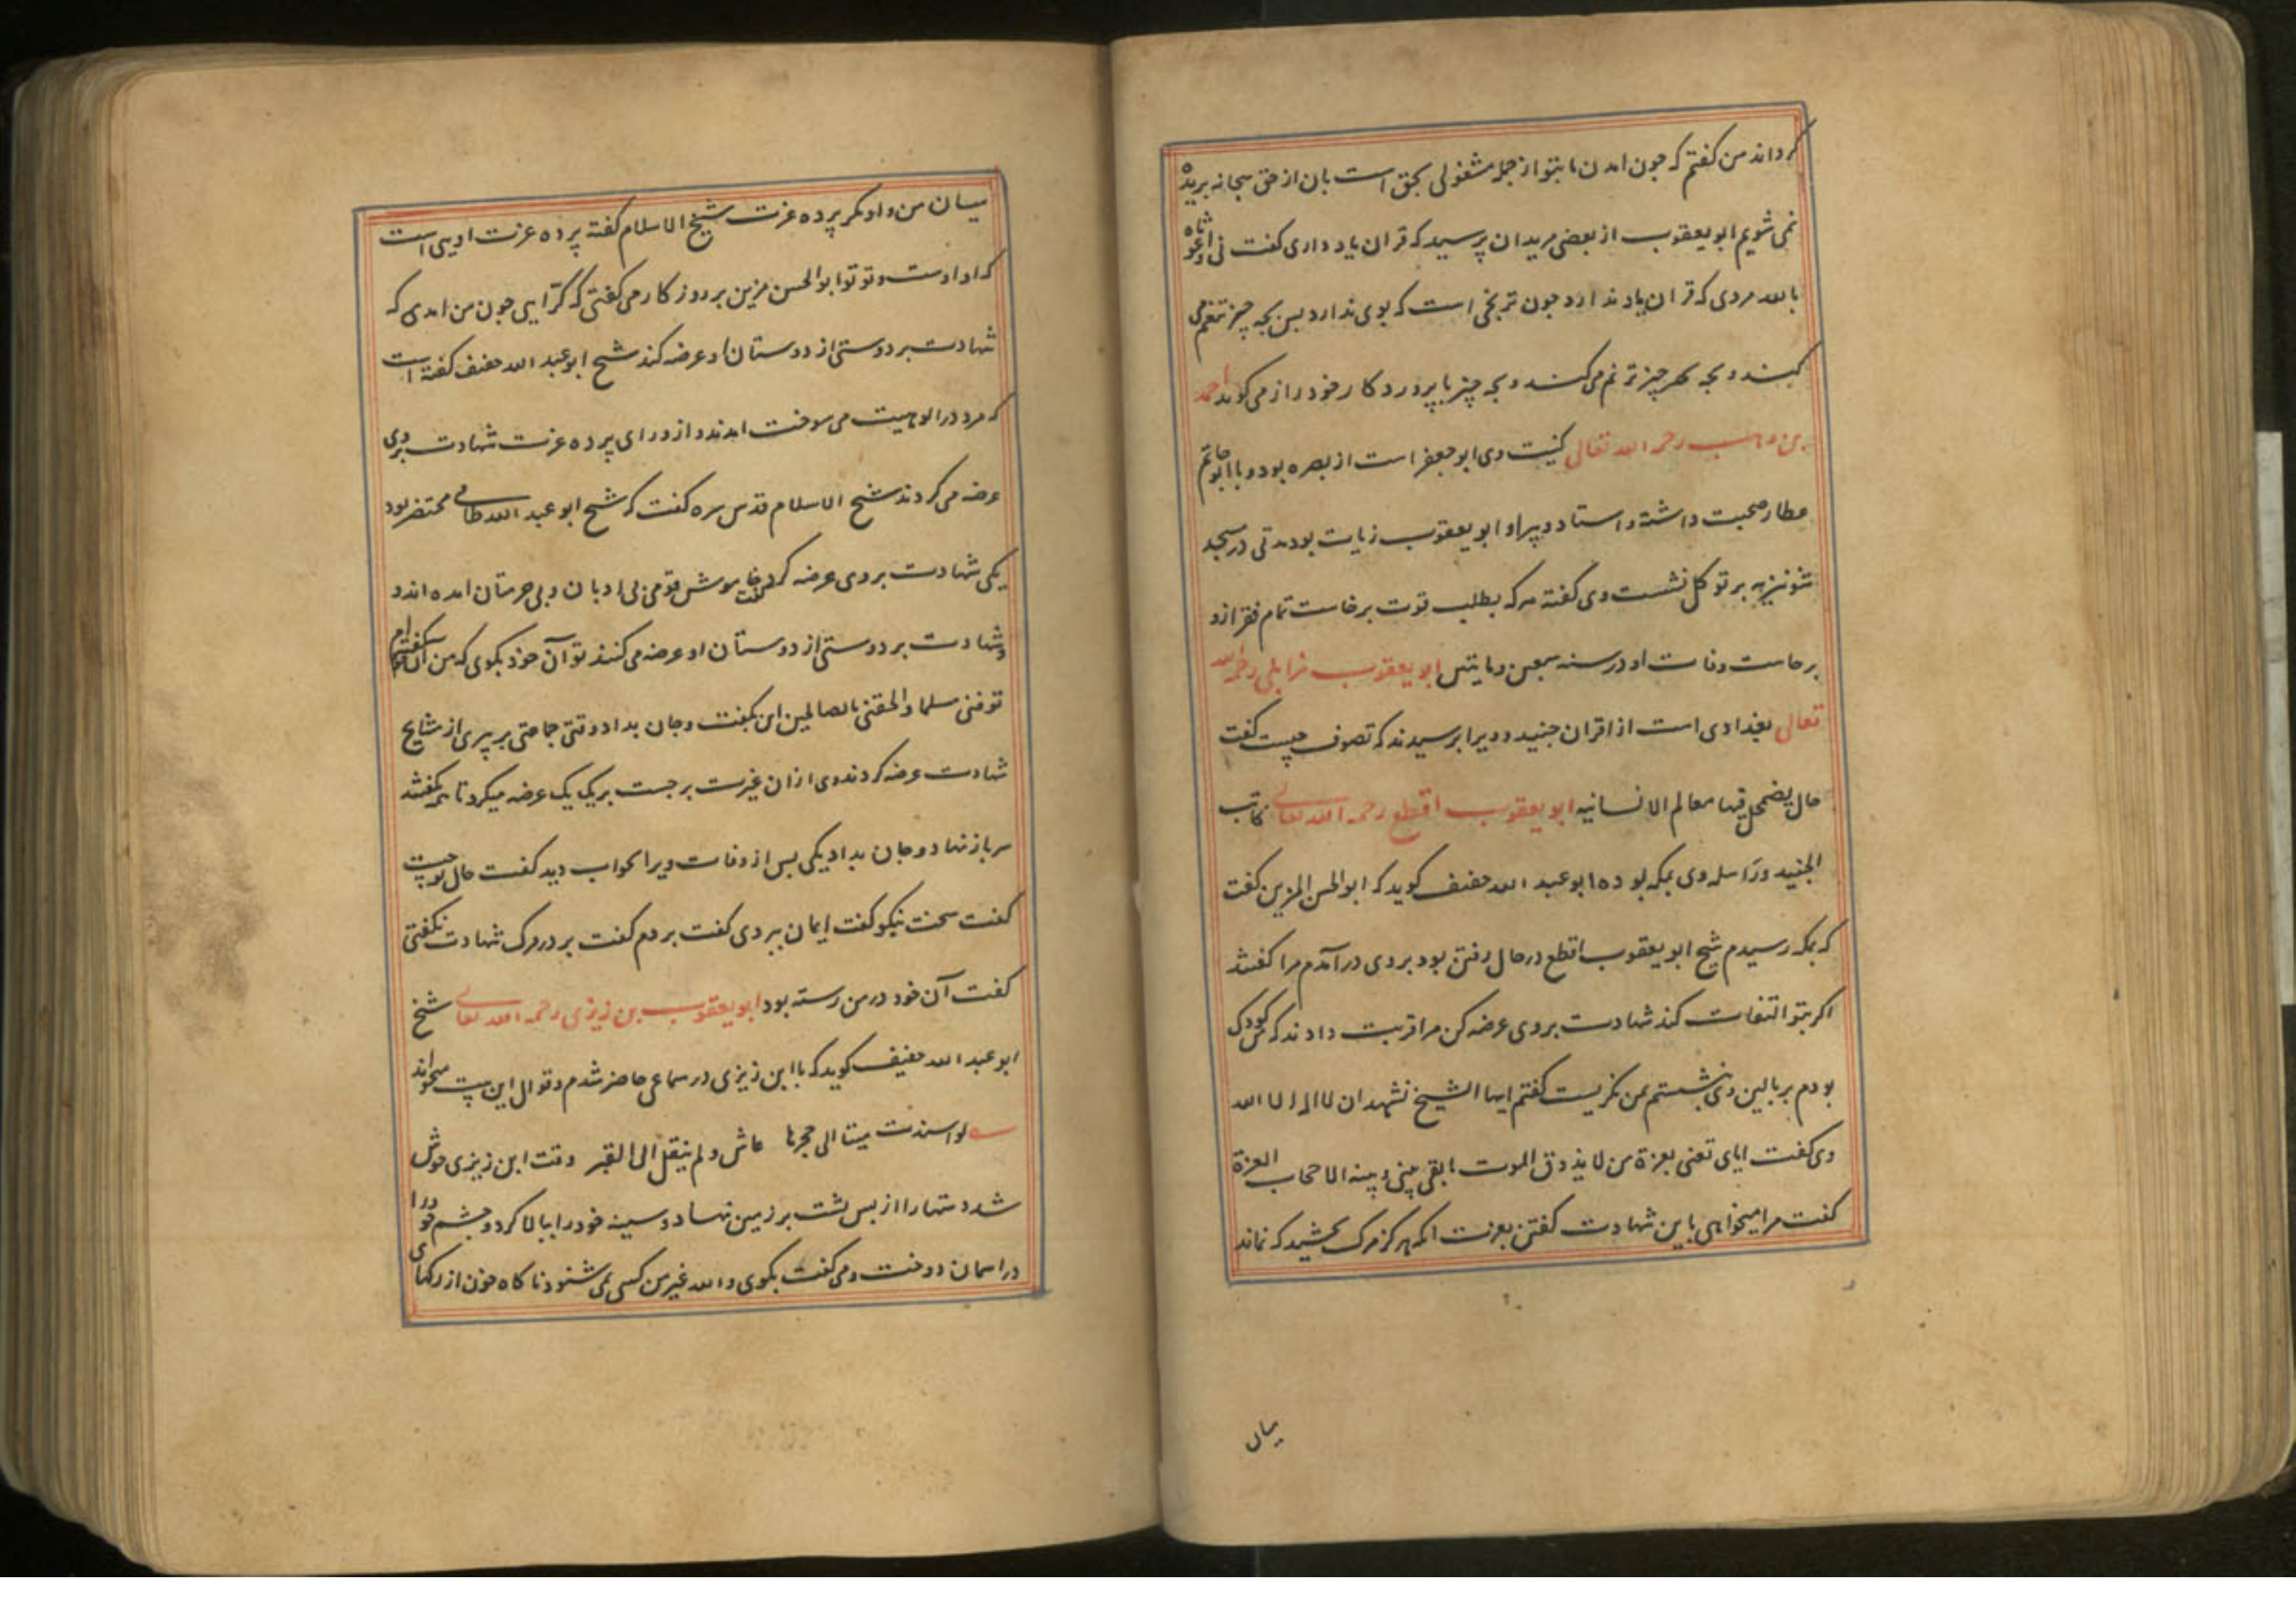 گرداند من گفتم که جون امدن ما بتو از جمله مشغولی بحق است بان از حق سبحانه بریده
نمی شویم ابو یعقوب از بعضی مریدان پرسید که قران یاد داری گفت نی واغوثاه
بالله مردی که قران یاد ندارد جون ترنجی است که بوی ندارد بس بچه چیز تنغم می
کنند و بچه چیز ترنم می کنند و بچه چیز با پروردکار خود راز می کوید احمد
بن وهب رحمه الله تعالی کنیت وی ابو جعفر است از بصره بود و با ابو حاتم
عطار صحبت داشته و استاد و پیر او ابو یعقوب زیات بود مدتی در مسجد
شونیزیه بر توکل نشست وی گفته هرکه بطلب قوت برخاست نام فقر ازو
برخاست وفات او در سنه سبعین و مایتین ابو یعقوب مزابلی رحمه الله
تعالی بغدادی است از اقران جنید و ویرا برسیدند که تصوف چیست گفت
حال یضمحل فیها معالم الانسانیه ابو یعقوب اقطع رحمه الله تعالی کاتب
الجنید وراسله وی بمکه بوده ابو عبد الله خفیف کوید که ابو الحسن المزین گفت
که بمکه رسیدم شیخ ابو یعقوب اقطع در حال رفتن بود بر وی در آمدم مرا گفتند
اکر بتو التفات کند شهادت بر وی عرضه کن مرا فریب دادند که من کودک
بودم بر بالین وی بنشستم بمن نکریست گفتم ایها الشیخ تشهد ان لا اله الا الله
وی گفت ایای تعنی بعزة من لا یذوق الموت ما بقی بینی و بینه الا حجاب العزة
گفت مرا میخواهی باین شهادت گفتن بعزت انکه هرکز مرک نچشید که نماند
میان
میان من و او مکر پرده عزت شیخ الاسلام گفته پرده عزت اویی است
که او اوست و تو تو ابو الحسن مزین بر روزکار می گفتی که گرایی جون من امدی که
شهادت بر دوستی از دوستان او عرضه کند شیخ ابو عبد الله خفیف گفته است
که مرد در الوهیت می سوخت امدند و از ورای پرده عزت شهادت بر وی
عرضه می کردند شیخ الاسلام قدس سره گفت که شیخ ابو عبد الله طاقی محتضر بود
یکی شهادت بر وی عرضه کرد گفت خاموش قومی بی ادبان و بی حرمتان امده اند و
شهادت بر دوستی از دوستان او عرضه می کنند تو آن خود بکوی که من آن خود گفته ام
توفنی مسلما و الحقنی بالصالحین این بگفت و جان بداد وقتی جماعتی بر پیری از مشایخ
شهادت عرضه کردند وی ازان غیرت برجست بر یک یک عرضه میکرد تا همه گفتند
سر باز نهاد و جان بداد یکی بس از وفات ویرا بخواب دید گفت حال تو چیست
گفت سخت نیکو گفت ایمان ببردی گفت بردم گفت بر در مرک شهادت نکفتی
گفت آن خود در من رسته بود ابو یعقوب بن زیزی رحمه الله تعالی شیخ
ابو عبد الله خفیف کوید که با ابن زیزی در سماعی حاضر شدم و قوال این بیت میخواند
لو اسندت میتا الی حجرها عاش و لم ینقل الی القبر وقت ابن زیزی خوش
شد دستها را از بس پشت بر زمین نهاد و سینه خود را ببالا کرد و چشم خود را
در اسمان دوخت و می گفت بکوی و الله غیر من کسی نمی شنود ناکاه خون از رکهای